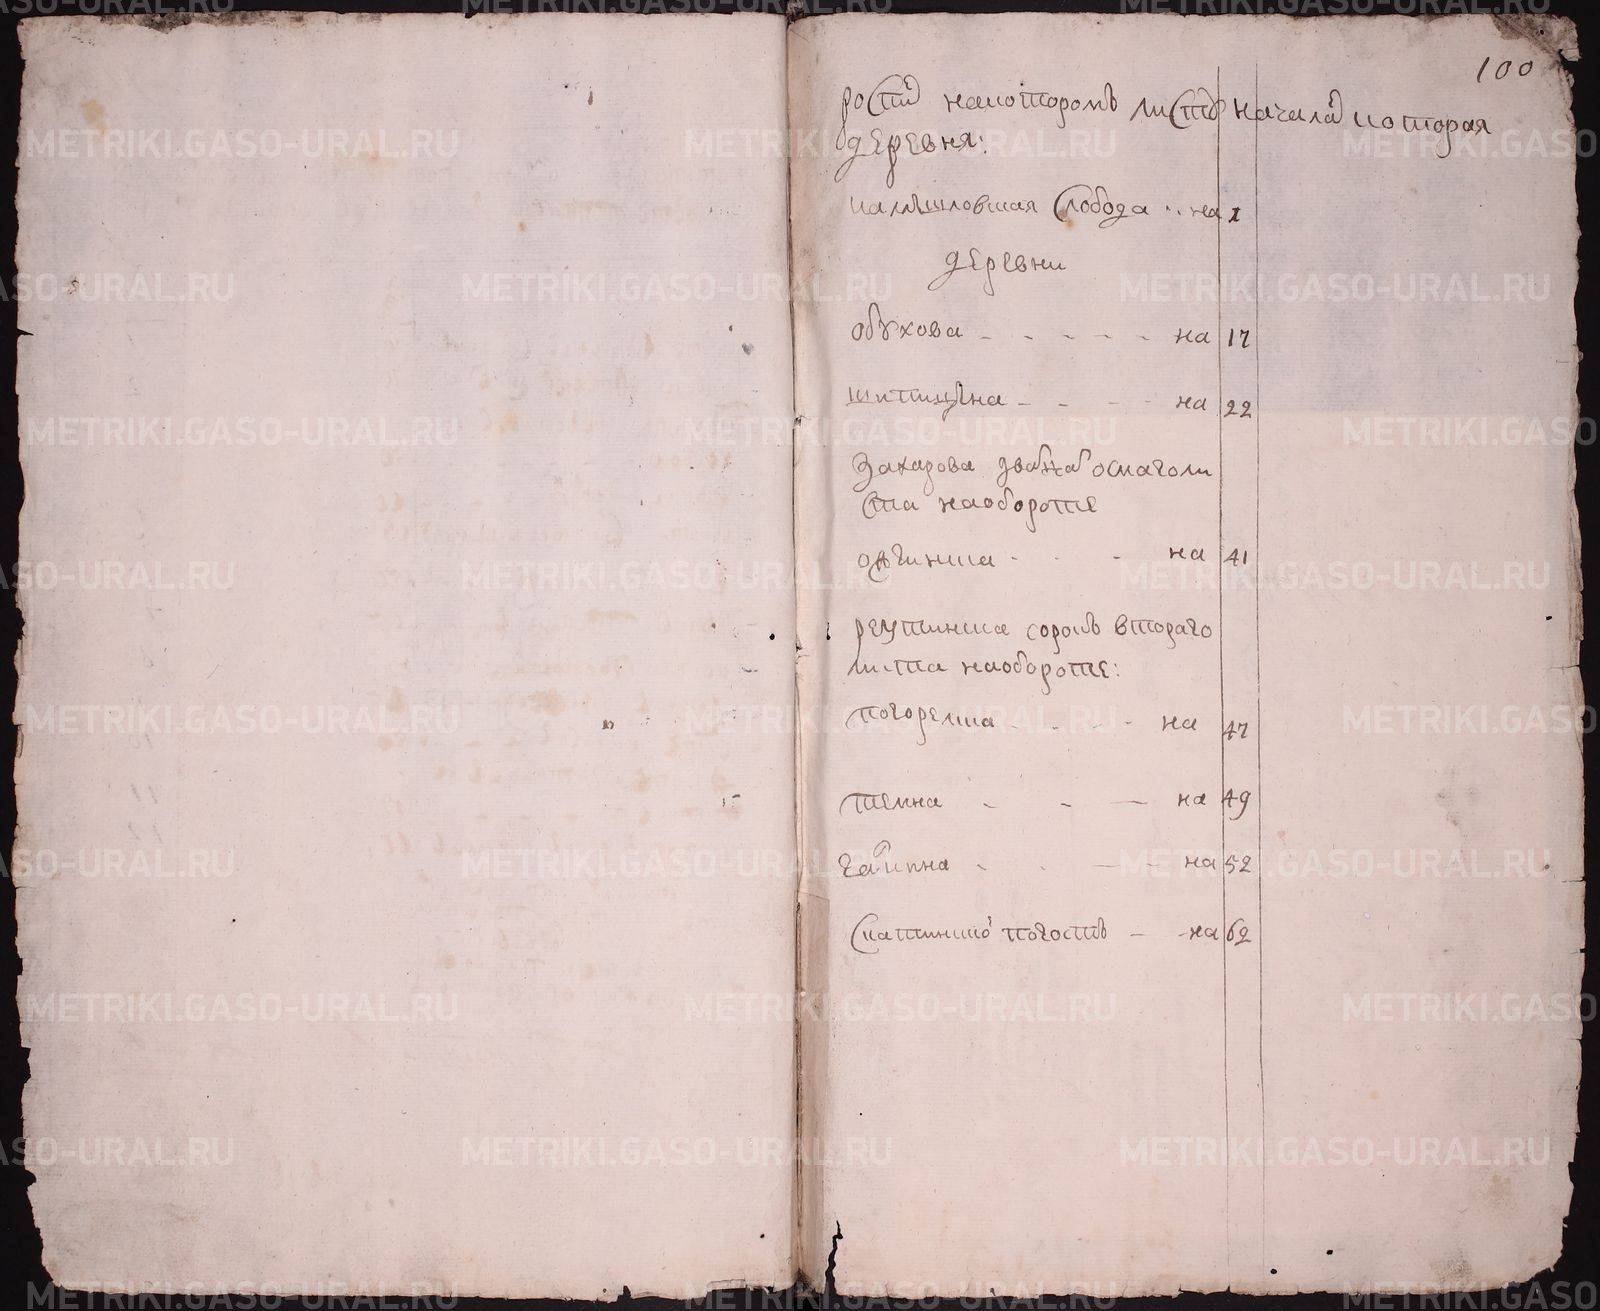 100
ростй накоторомъ листѣ начала которая
деревня:
камышловская слобода на 1
деревни
обухова на 17
шипицына на 22
Захарова двацат осмаголи
ста наобороте
одинка на 41
реутинка сорокъ втораго
листа наобороте:
погорелка на 47
темна на 49
галкина на 52
скатинской погостъ на 62
METRIKI.GASO-URAL.RU